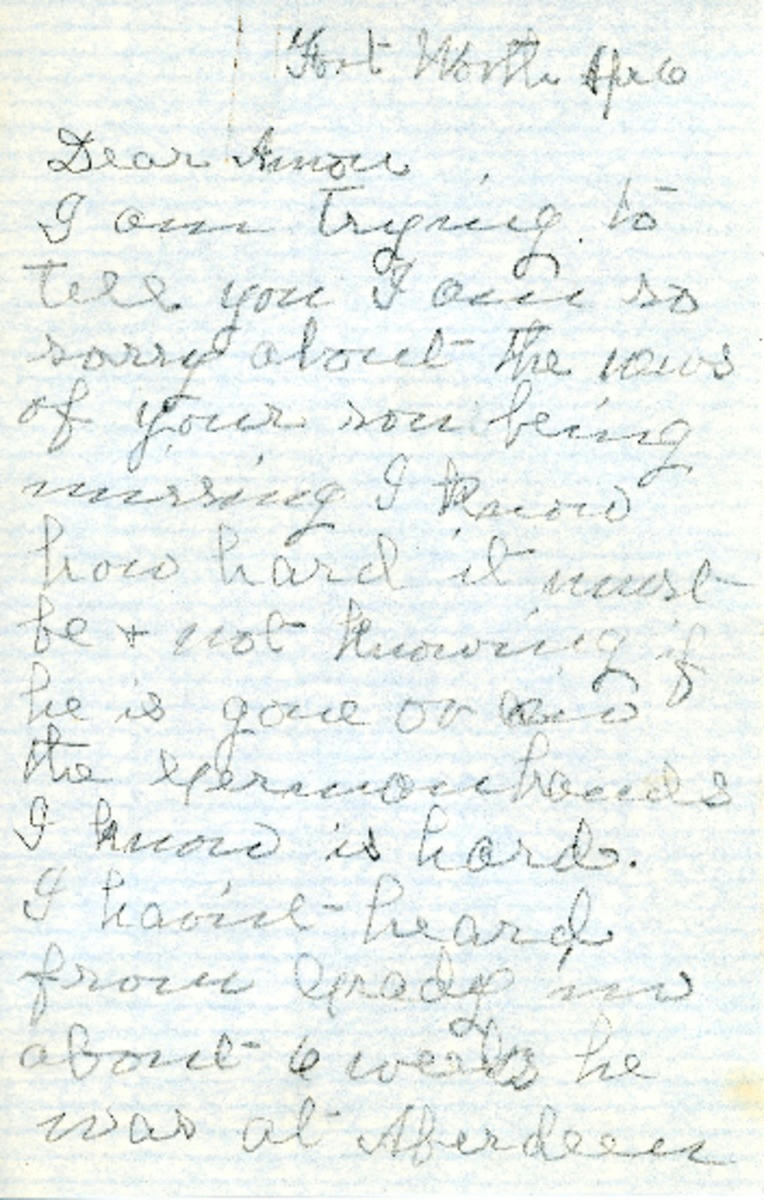 Fort Worth Apr 6
Dear Amon
I am trying to
tell you I am so
sorry about the news
of your son being
missing I know
how hard it must
be + not knowing if
he is gone or in
the German hands
I know is hard.
I havint heard
from Grady in
about 6 weeks he
was at Aberdeen